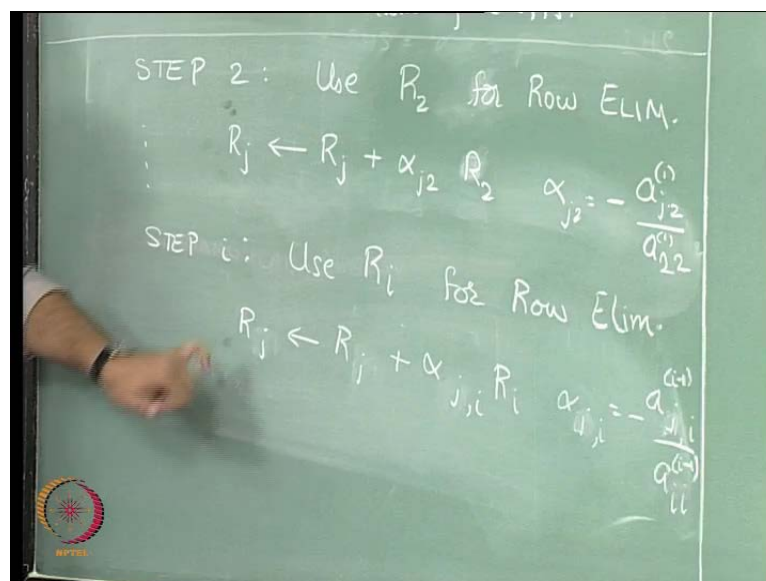 STEP 2: Use R₂ for Row ELIM.
Rⱼ ← Rⱼ + αⱼ₂ R₂  αⱼ₂ = - aⱼ₂⁽¹⁾ / a₂₂⁽¹⁾
STEP i: Use Rᵢ for Row Elim.
Rⱼ ← Rⱼ + αⱼ,ᵢ Rᵢ  αⱼ,ᵢ = - aⱼ,ᵢ⁽ⁱ⁻¹⁾ / aᵢᵢ⁽ⁱ⁻¹⁾
NPTEL